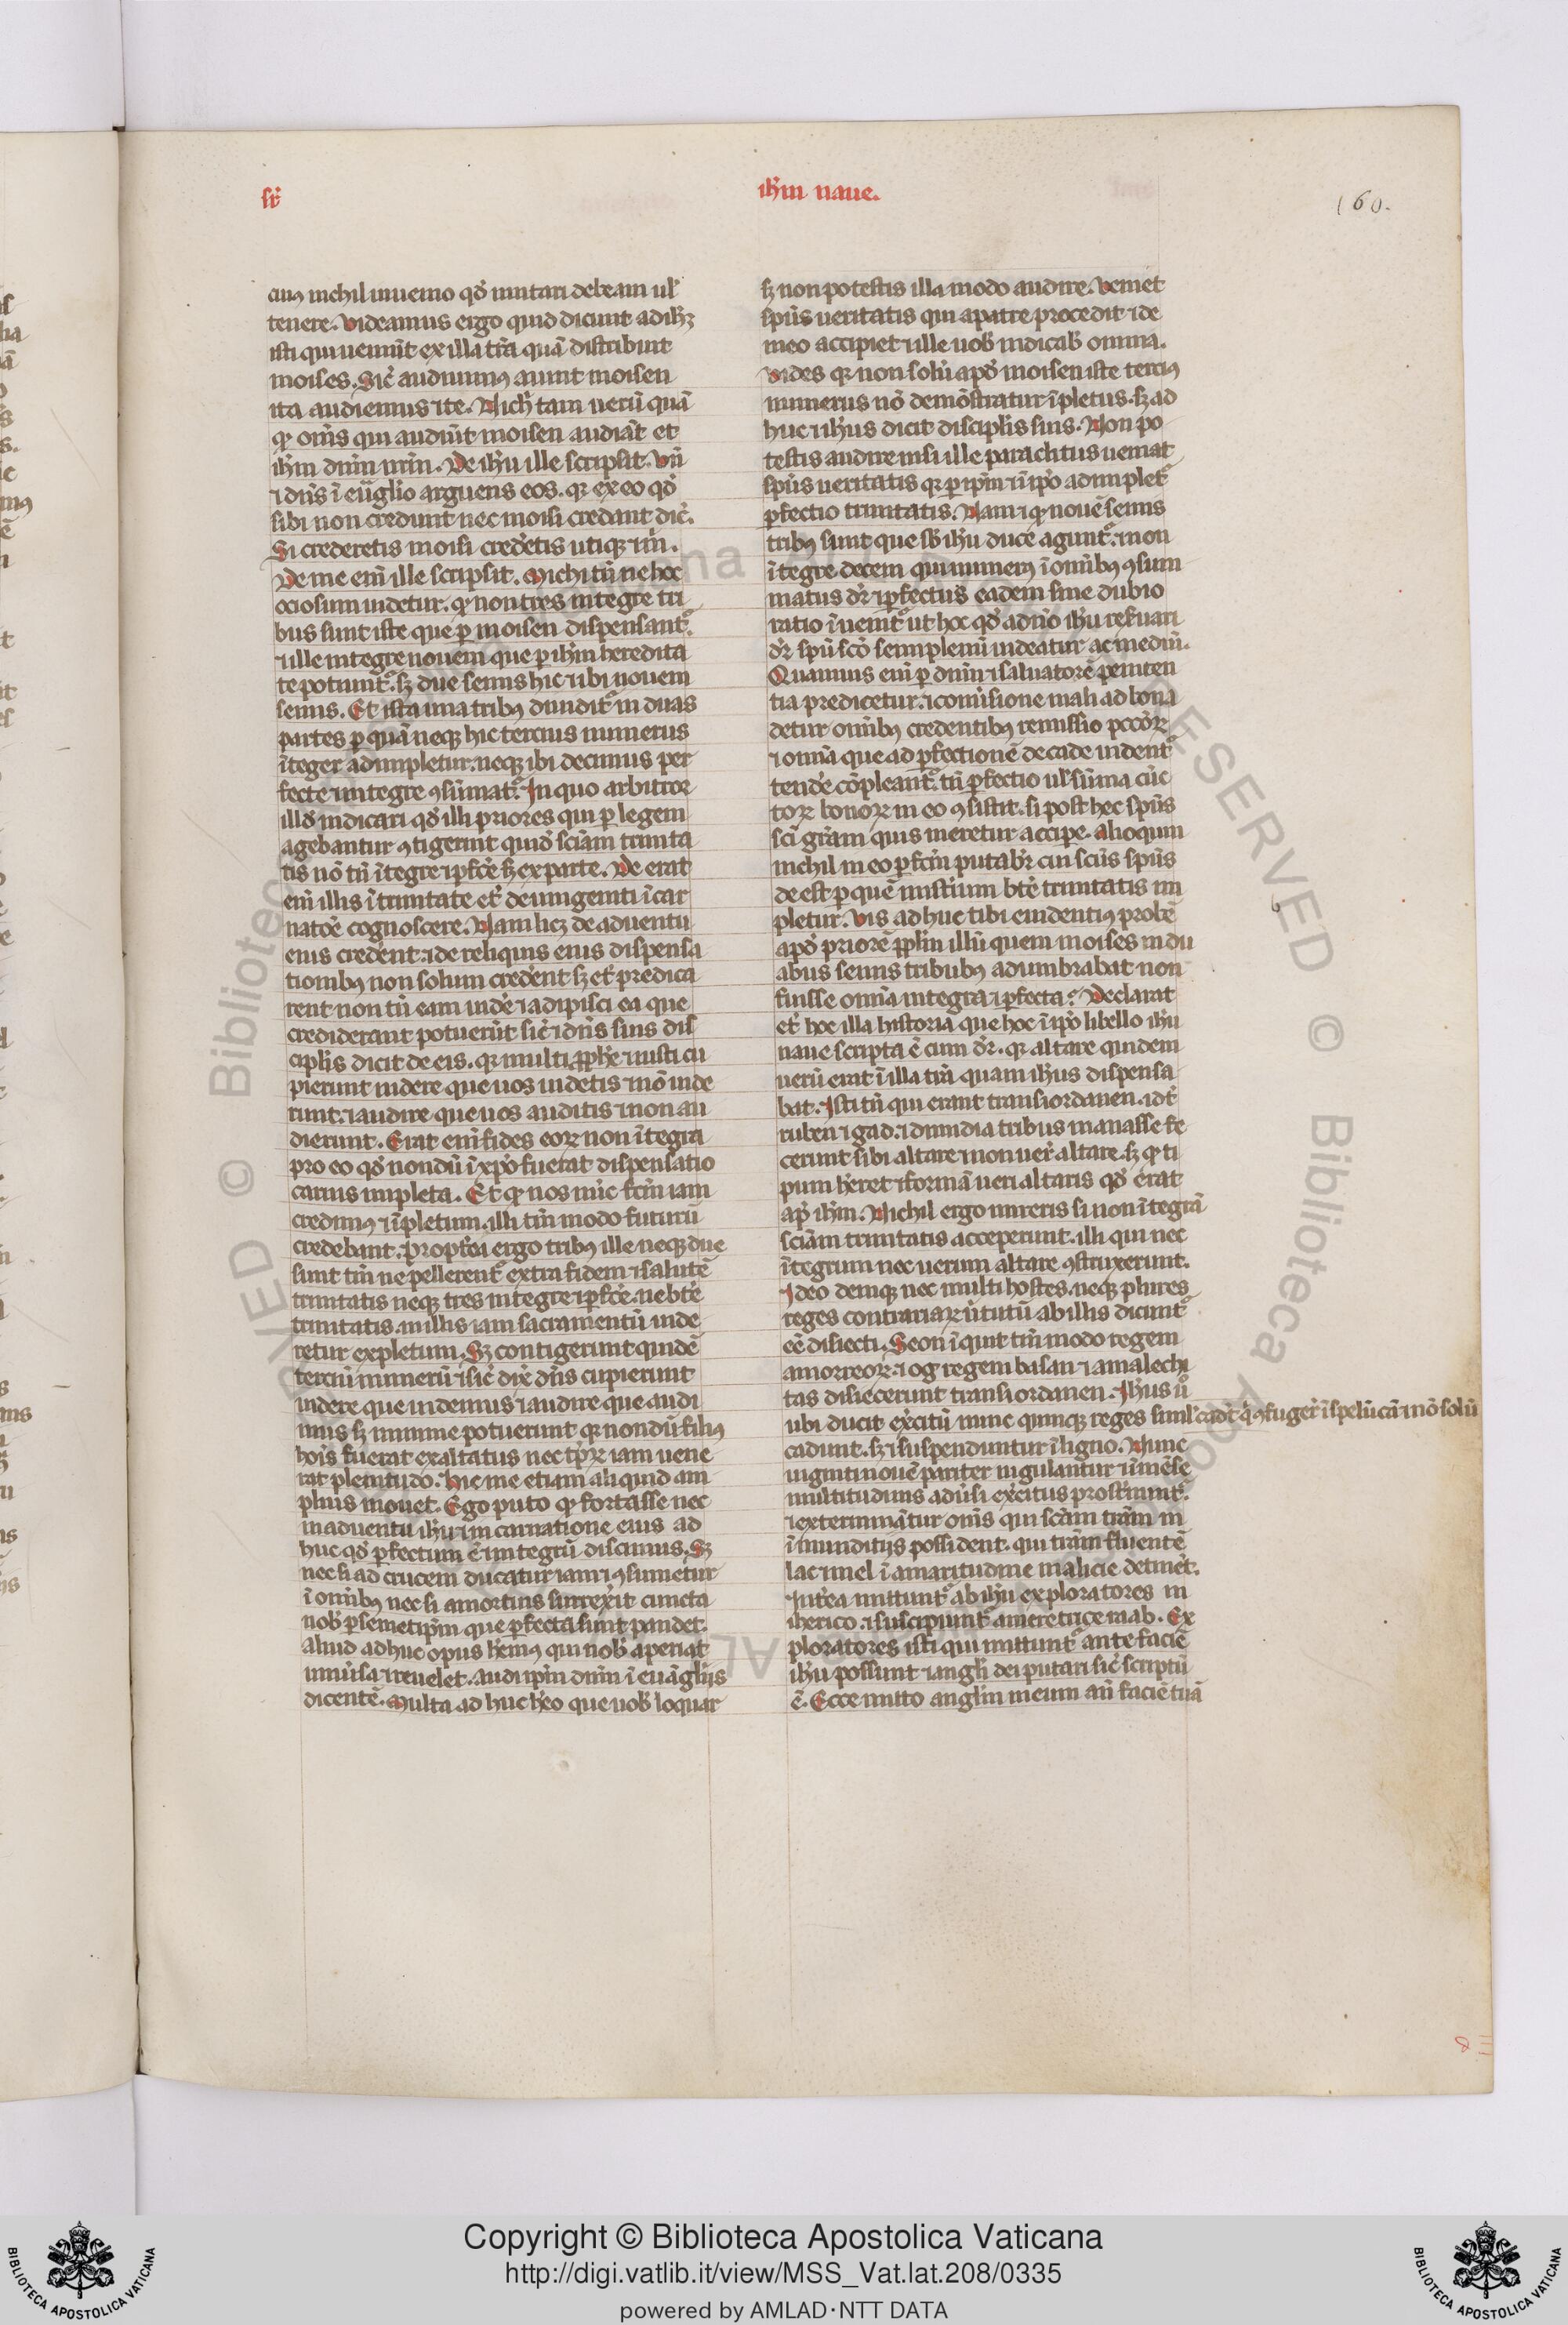 sr̄
ih̄m naue.
160.
cui9 nichil inuenio qd̓ mutari debeam ul̓
tenere. Videamus ergo quid dicunt ad ih̄ꝫ
isti qui uenīūt ex illa tr̄a quā distribuit
moises. Sic̓ audiuim9 aiunt moisen
ita audiemus ⁊ te. Nich̓ tam uerū quā
qꝫ om̄s qui audiūt moisen audiāt et
ih̄m dn̄m nr̄m. De ih̄u ille scripsit. Vn̄
⁊ dn̄s ī euāglio arguens eos. qꝛ ex eo qd̓
sibi non credunt nec moisi credant dic̓.
Si crederetis moisi cred̓etis utiqꝫ ⁊ m̓.
De me eni ille scripsit. Michi tn̄ ne hoc
ociosum uidetur. qꝫ non tres integre tri
bus sunt iste que ꝑ moisen dispensant᷑.
⁊ ille integre nouem que ꝑ ih̄m heredita
te potiunt᷑. sꝫ due semis hic ⁊ ibi nouem
semis. Et ista una trib9 diuidit᷑ in duas
partes ꝑ quā neqꝫ hic tercius numerus
īteger adimpletur. neqꝫ ibi decimus per
fecte ⁊ integre ꝯsūmat᷑. In quo arbitror
illd̓ indicari qd̓ illi priores qui ꝑ legem
agebantur ꝯtigerint quid̓ sciām trinita
tis nō tn̄ ītegre ⁊ ꝑfc̄e sꝫ ex parte. De erat
eni illis ī trinitate et̓ de unigeniti īcar
natōe cognoscere. Nam licꝫ de aduentu
eius cred̓ent. ⁊ de reliquis eius dispensa
tionib9 non solum cred̓ent sꝫ et̓ predica
rent non tn̄ eam uid̓e ⁊ adipisci ea que
crediderant potuerūt sic̓ ⁊ dn̄s suis dis
cipl̓is dicit de eis. qꝛ multi ꝓph̓e ⁊ iusti cu
pierunt uidere que uos uidetis ⁊ nō uide
runt. ⁊ audire que uos auditis ⁊ non au
dierunt. Erat eni fides eoꝝ non ītegra
pro eo qd̓ nondū ī xp̄o fuerat dispensatio
carnis impleta. Et qꝫ nos nūc fc̄m iam
credim9 ⁊ īpletum. illi tm̄ modo futurū
credebant. propt̓ea ergo trib9 ille neqꝫ due
sunt tm̄ ne pellerent᷑ extra fidem ⁊ salutē
trinitatis neqꝫ tres integre ⁊ ꝑfc̄e. ne bt̄e
trinitatis. in illis iam sacramentū uide
retur expletum. Sꝫ contigerunt quidē
terciū numerū ⁊ sic̓ dix̓ dn̄s cupierunt
uidere que uidemus ⁊ audire que audi
mus sꝫ minime potuerunt qꝛ nondū fili9
hoīs fuerat exaltatus nec tp̄ꝝ iam uene
rat plenitudo. Hic me etiam aliquid am
plius mouet. Ego puto qꝫ fortasse nec
in aduentu ih̄u ⁊ in carnatione eius ad
huc qd̓ ꝑfectum ē ⁊ integrū discimus. Sꝫ
nec si ad crucem ducatur iam ⁊ ꝯsumetur
ī omīb9 nec si a mortuis surrex̓it cuncta
nob̓ ꝑ semetip̄m que ꝑfecta sunt pandet.
aliud adhuc opus hēm9 qui nob̓ aperiat
uniūsa ⁊ reuelet. audi ip̄m dn̄m ī euāgliis
dicentē. Multa ad huc hēo que uob̓ loquar
sꝫ non potestis illa modo audire. Veniet
sp̄us ueritatis qui a patre procedit ⁊ de
meo accipiet ⁊ ille uob̓ indicab̓ omnia.
Vides qꝛ non solū apd̓ moisen iste terci9
numerus nō demōstratur īpletus. sꝫ ad
huc ⁊ ih̄us dicit discipl̓is suis. Non po
testis audire nisi ille paraclitus ueniat
sp̄us ueritatis qꝛ ꝑ ip̄m ⁊ ī ip̄o adimplet᷑
ꝑfectio trinitatis. Nam ⁊ qꝫ nouē semis
trib9 sunt que sb̓ ih̄u duce agunt᷑. ⁊ non
ītegre decem qui numer9 ī omīb9 ꝯsum
matus dr̄ ⁊ ꝑfectus eadem sine dubio
ratio īuenit᷑ ut hoc qd̓ a dn̄o ih̄u res̓uari
dr̄ sp̄u sc̄o semiplenū uideatur ac mediū.
Quamuis eni ꝑ dn̄m ⁊ saluatorē peniten
tia predicetur. ⁊ cōūsione mali ad bona
detur omīb9 credentib9 remissio pcc̄oꝝ
⁊ omīa que ad ꝑfectionē decade uident᷑
tend̓e cōpleant᷑. tn̄ ꝑfectio ul̓ sūma cūc
toꝝ bonoꝝ in eo ꝯsistit. si post hec sp̄us
sci grām quis meretur accipe. alioquin
nichil in eo ꝑfcm̄ putabr̄ cui sc̄us sp̄us
de est ꝑ quē mist̓ium bt̄e trinitatis im
pletur. Vis ad huc tibi euidenti9 probē
apd̓ priorē ꝓplm̄ illū quem moises in du
abus semis tribub9 adumbrabat non
fuisse omīa integra ⁊ ꝑfecta? Declarat
et̓ hoc illa historia que hoc ī ip̄o libello ih̄u
naue scripta ē cum dr̄. qꝛ altare quidem
uerū erat ī illa tr̄a quam ih̄us dispensa
bat. Isti tn̄ qui erant trans iordanen. id̓t
ruben ⁊ gad. ⁊ dimidia tribus manasse fe
cerunt sibi altare ⁊ non uer̄ altare. sꝫ qꝫ ti
pum h̄eret ⁊ formā ueri altaris qd̓ erat
ap̄ ih̄m. Nichil ergo mireris si non ītegrā
sciām trinitatis acceperunt. illi qui nec
ītegrum nec uerum altare ꝯstruxerunt.
Ideo deniqꝫ nec multi hostes. neqꝫ plures
reges contrariaꝝ ūtutū ab illis dicunt᷑
eē disiecti. Seon ī quit tm̄ modo regem
amorreoꝝ. ⁊ og regem basan ⁊ amalechi
tas disiecerunt trans iordanen. Ih̄us ū
ubi ducit ex̓citū nunc quinqꝫ reges simul cadt̓ q̓ ꝯfuger̄ ī spelūcā ⁊ nō solū
cadunt. sꝫ ⁊ suspenduntur ī ligno. Nunc
uiginti nouē pariter iugulantur ⁊ īmēse
multitudinis adūsi ex̓citus prost̓nunt᷑.
⁊ exterminātur om̄s qui scām trām in
īmunditiis possident. qui trām fluentē
lac ⁊ mel ī amaritudine malicie detinēt.
Int̓ea mittunt᷑ ab ih̄u exploratores in
iherico. ⁊ suscipiunt᷑ a meretrice raab. Ex
ploratores isti qui mittunt᷑ ante faciē
ih̄u possunt ⁊ angl̓i dei putari sic̓ scriptū
ē. Ecce mitto anglm̄ meum an̄ faciē tuā
Copyright © Biblioteca Apostolica Vaticana
http://digi.vatlib.it/view/MSS_Vat.lat.208/0335
powered by AMLAD·NTT DATA